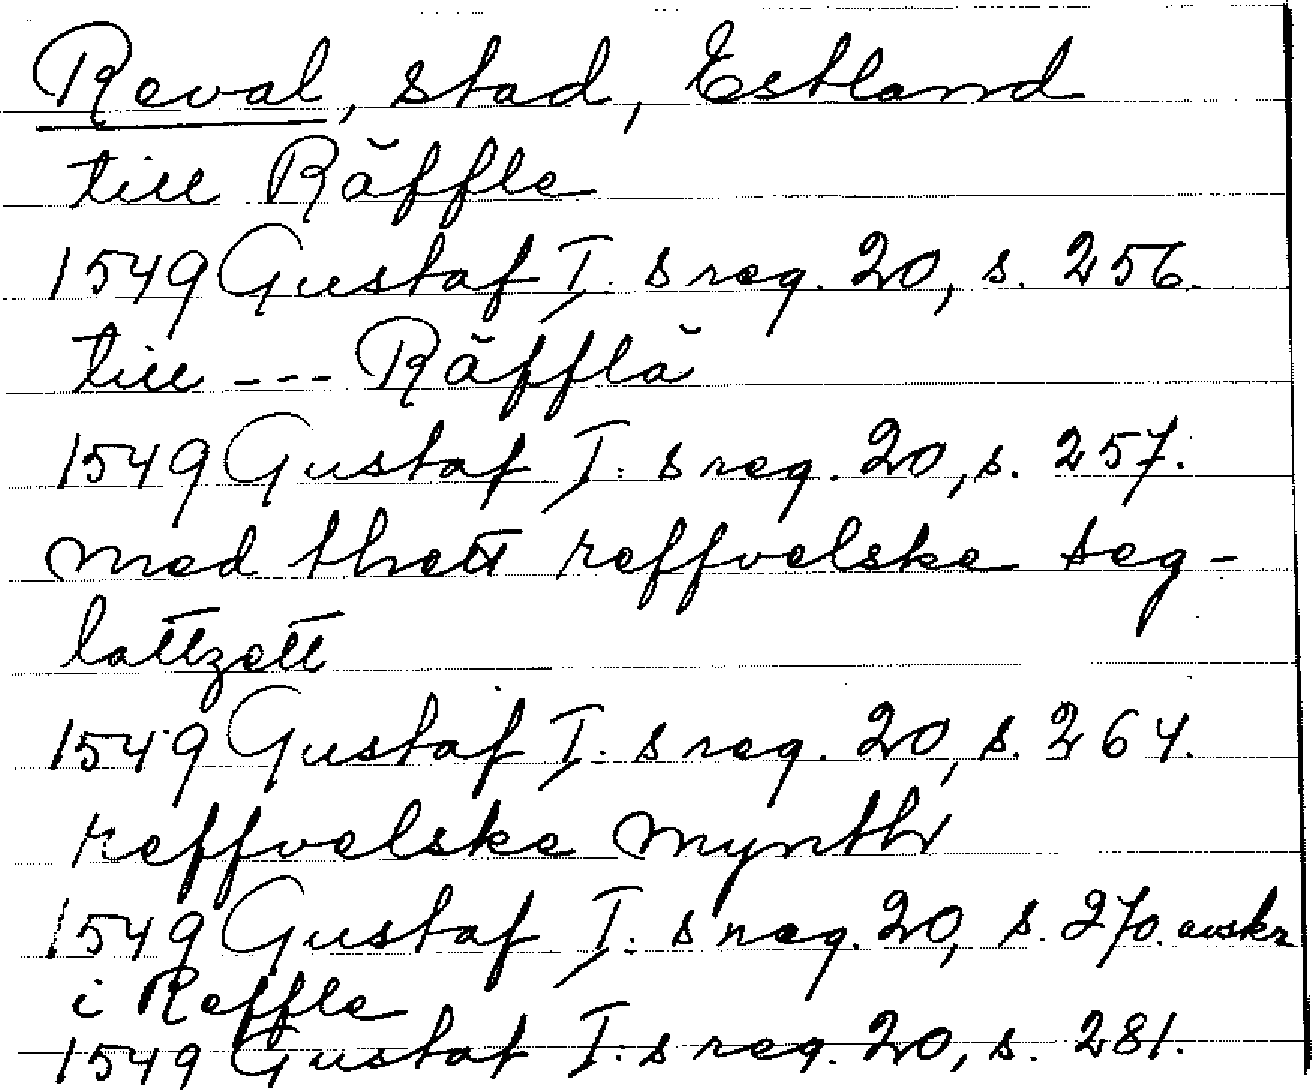 Reval, stad, Estland
till Räffle
1549 Gustaf I:s reg. 20, s. 256.
till --- Räfflä
1549 Gustaf I:s reg. 20, s. 257.
med thett reffvelske seg-
lattzett
1549 Gustaf I:s reg. 20, s. 264.
reffvelske mynthr
1549 Gustaf I:s reg. 20, s. 270. avskr
i Reffle
1549 Gustaf I:s reg. 20, s. 281.